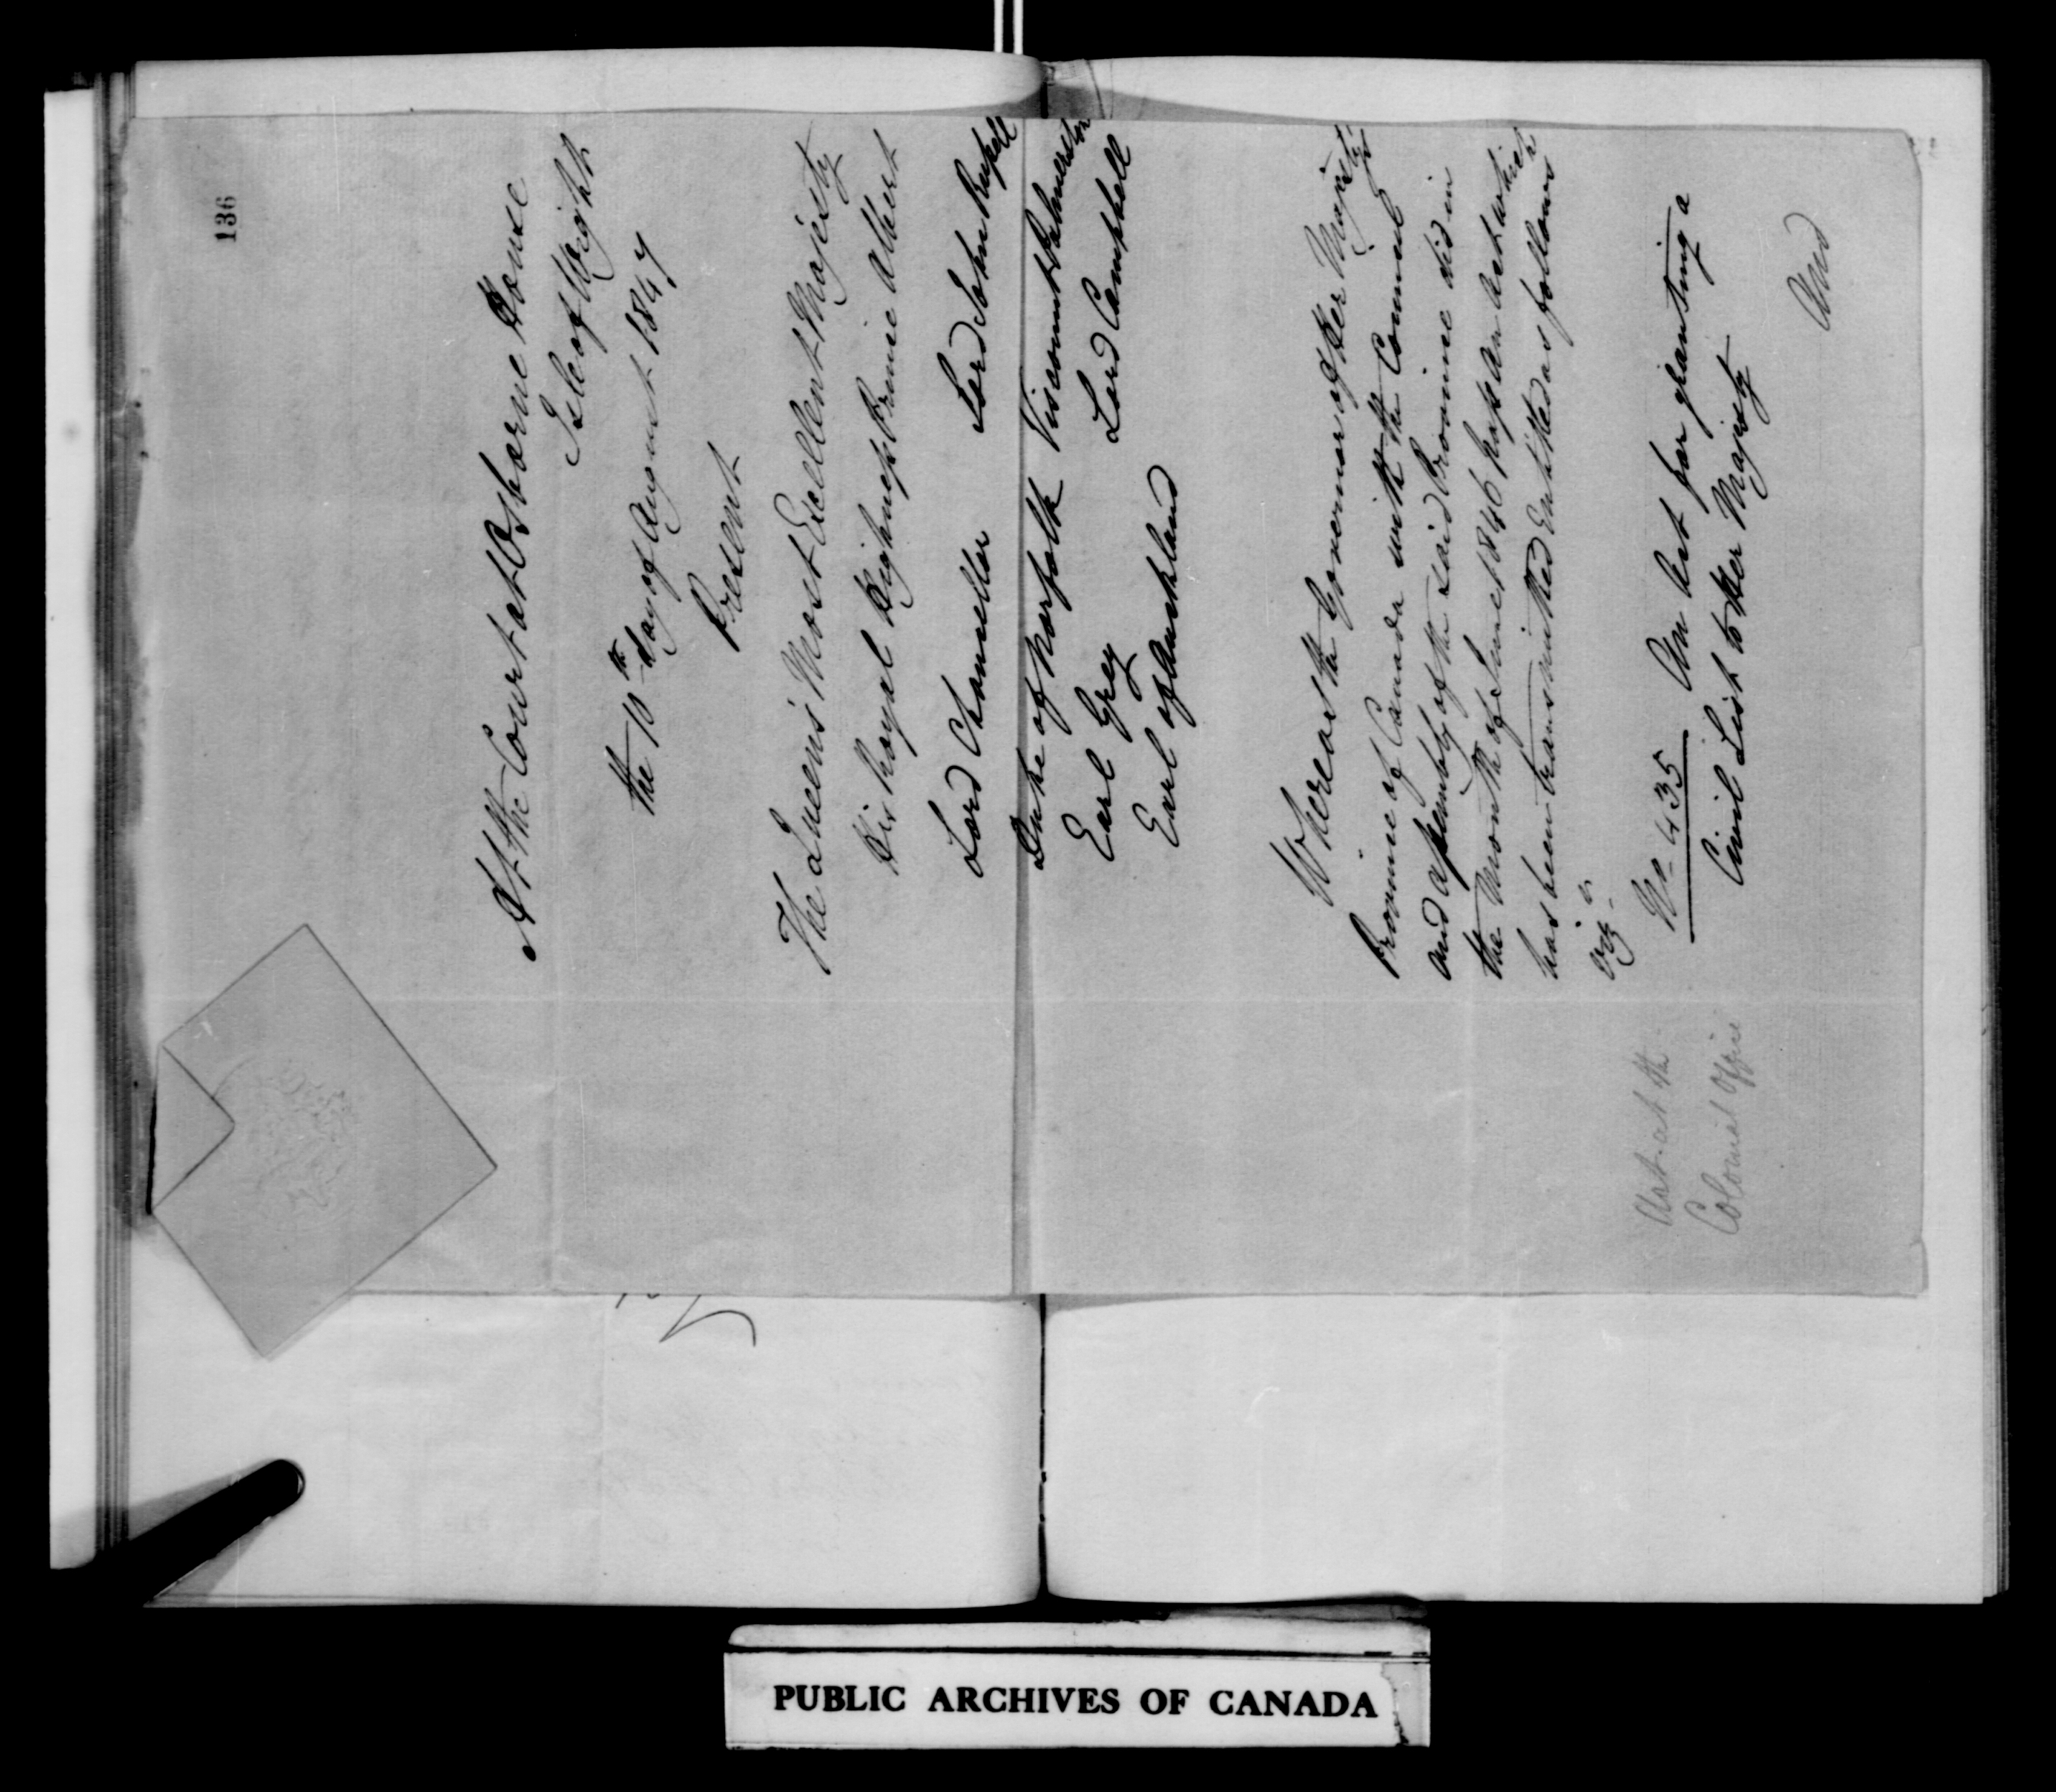 136
At the Court at Osborne House
Isle of Wight
the 10th day of August 1847
Present
The Queen's Most Excellent Majesty
His Royal Highness Prince Albert
Lord Chancellor Lord John Russell
Duke of Norfolk Viscount Palmerston
Earl Grey Lord Campbell
Earl of Auckland
Whereas the Governor of Her Majesty's
Province of Canada with the Council
and Assembly of the said Province did in
the Month of June 1846 pass an Act which
has been transmitted Entitled as follows
viz
No 435 An Act for granting a
Civil List to Her Majesty
Act at the
Colonial Office
And
PUBLIC ARCHIVES OF CANADA